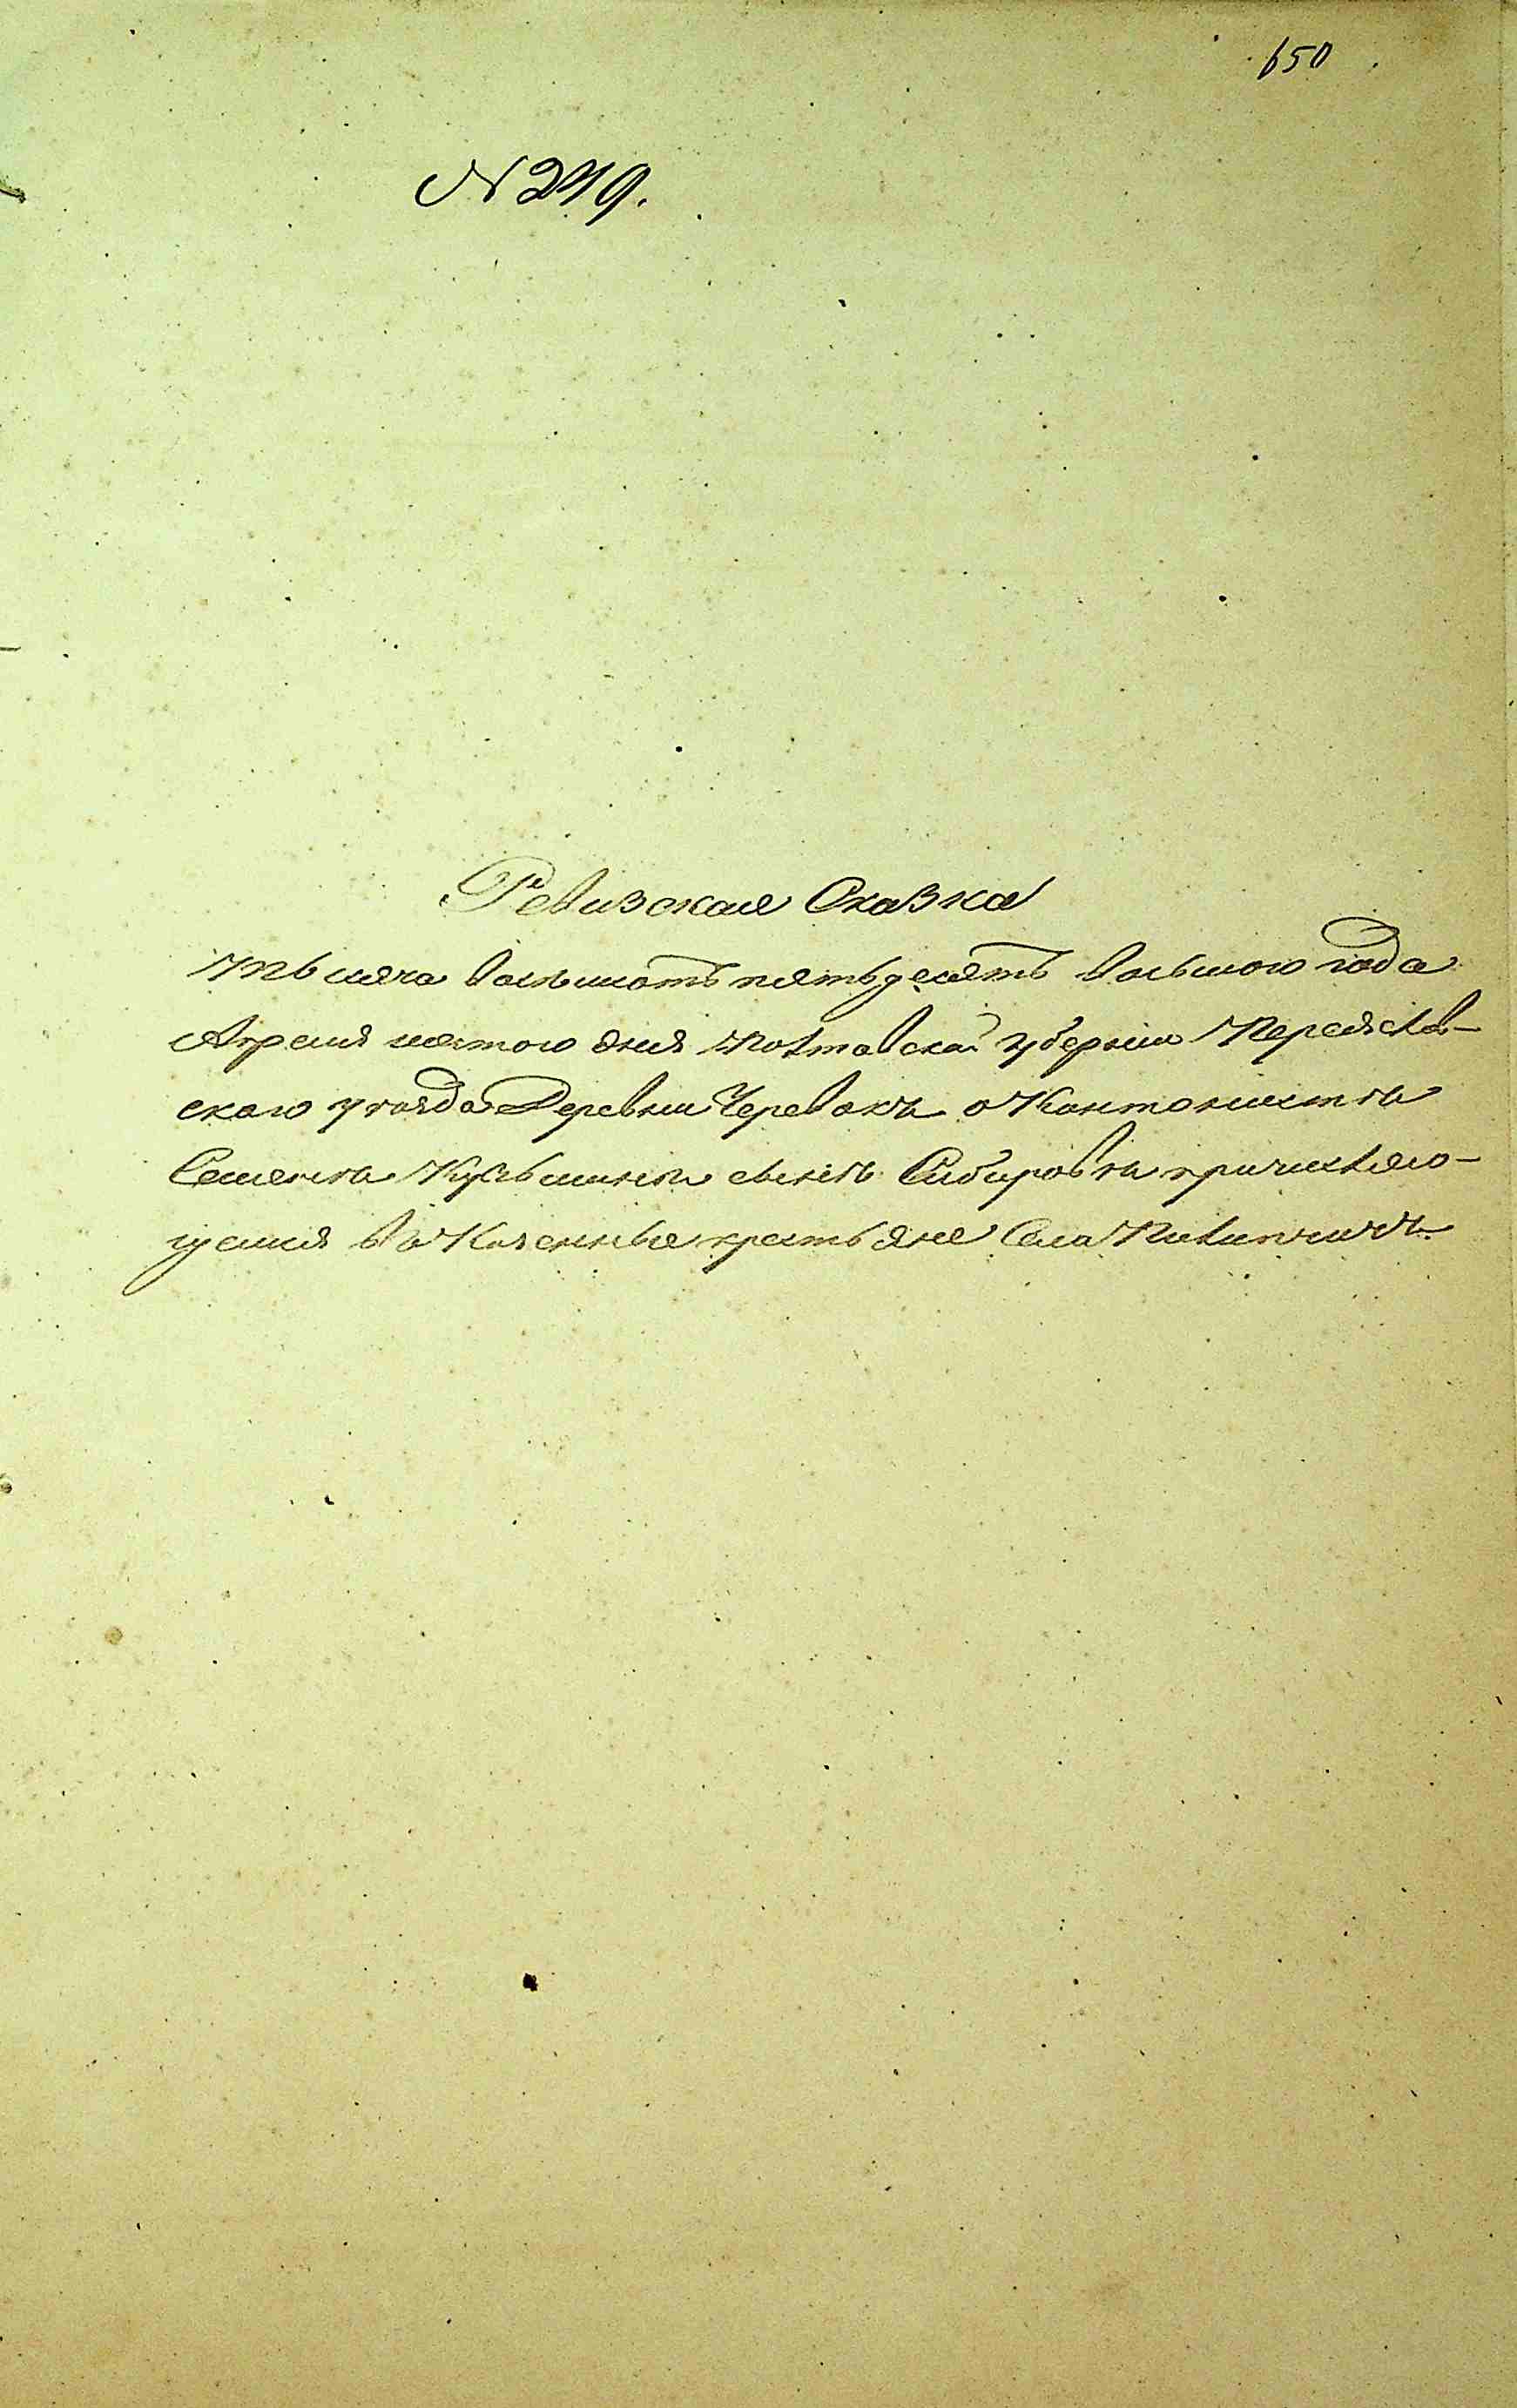 650
N 249.
Ревизская Сказка
тысяча восемьсотъ пятьдесятъ восьмого года
Апреля шестого дня Полтавской губерніи Переяслав-
скаго уезда Деревни Черевокъ о Кантонисте
Семене Кузьмине сыне Сибирове причисляю-
щемся въ Казенные крестьяне Села